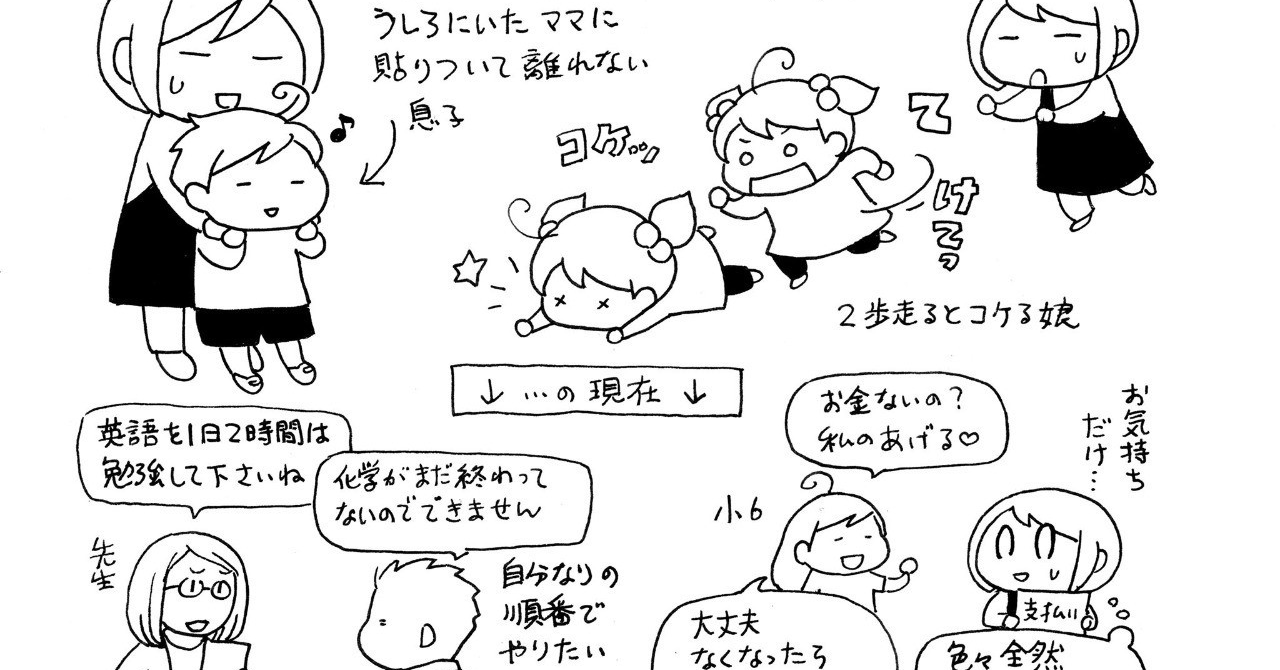 うしろにいたママに
貼りついて離れない
息子
コケッ
てけてっ
2歩走るとコケる娘
↓ …の現在 ↓
英語を1日2時間は
勉強して下さいね
先生
化学がまだ終わって
ないのでできません
自分なりの
順番で
やりたい
お金ないの?
私のあげる♡
小6
お気持ち
だけ…
支払い
大丈夫
なくなったら
色々全然